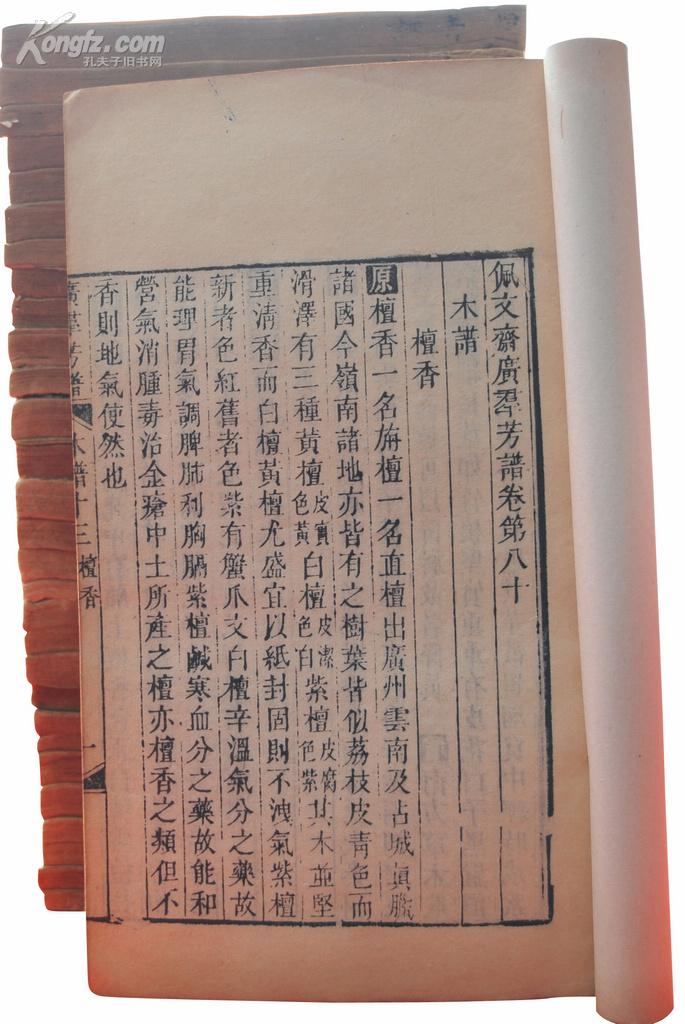 Kongfz.com
孔夫子旧书网
佩文齋廣羣芳譜卷第八十
木譜
檀香
原檀香一名旃檀一名真檀出廣州雲南及占城真臘
諸國今嶺南諸地亦皆有之樹葉皆似荔枝皮青色而
滑澤有三種黃檀皮實色黃白檀皮潔色白紫檀皮腐色紫其木並堅
重清香而白檀黃檀尤盛宜以紙封固則不洩氣紫檀
新者色紅舊者色紫有蟹爪文白檀辛溫氣分之藥故
能理胃氣調脾肺利胸膈紫檀鹹寒血分之藥故能和
營氣消腫毒治金瘡中土所產之檀亦檀香之類但不
香則地氣使然也
廣羣芳譜 木譜十三 檀香 一